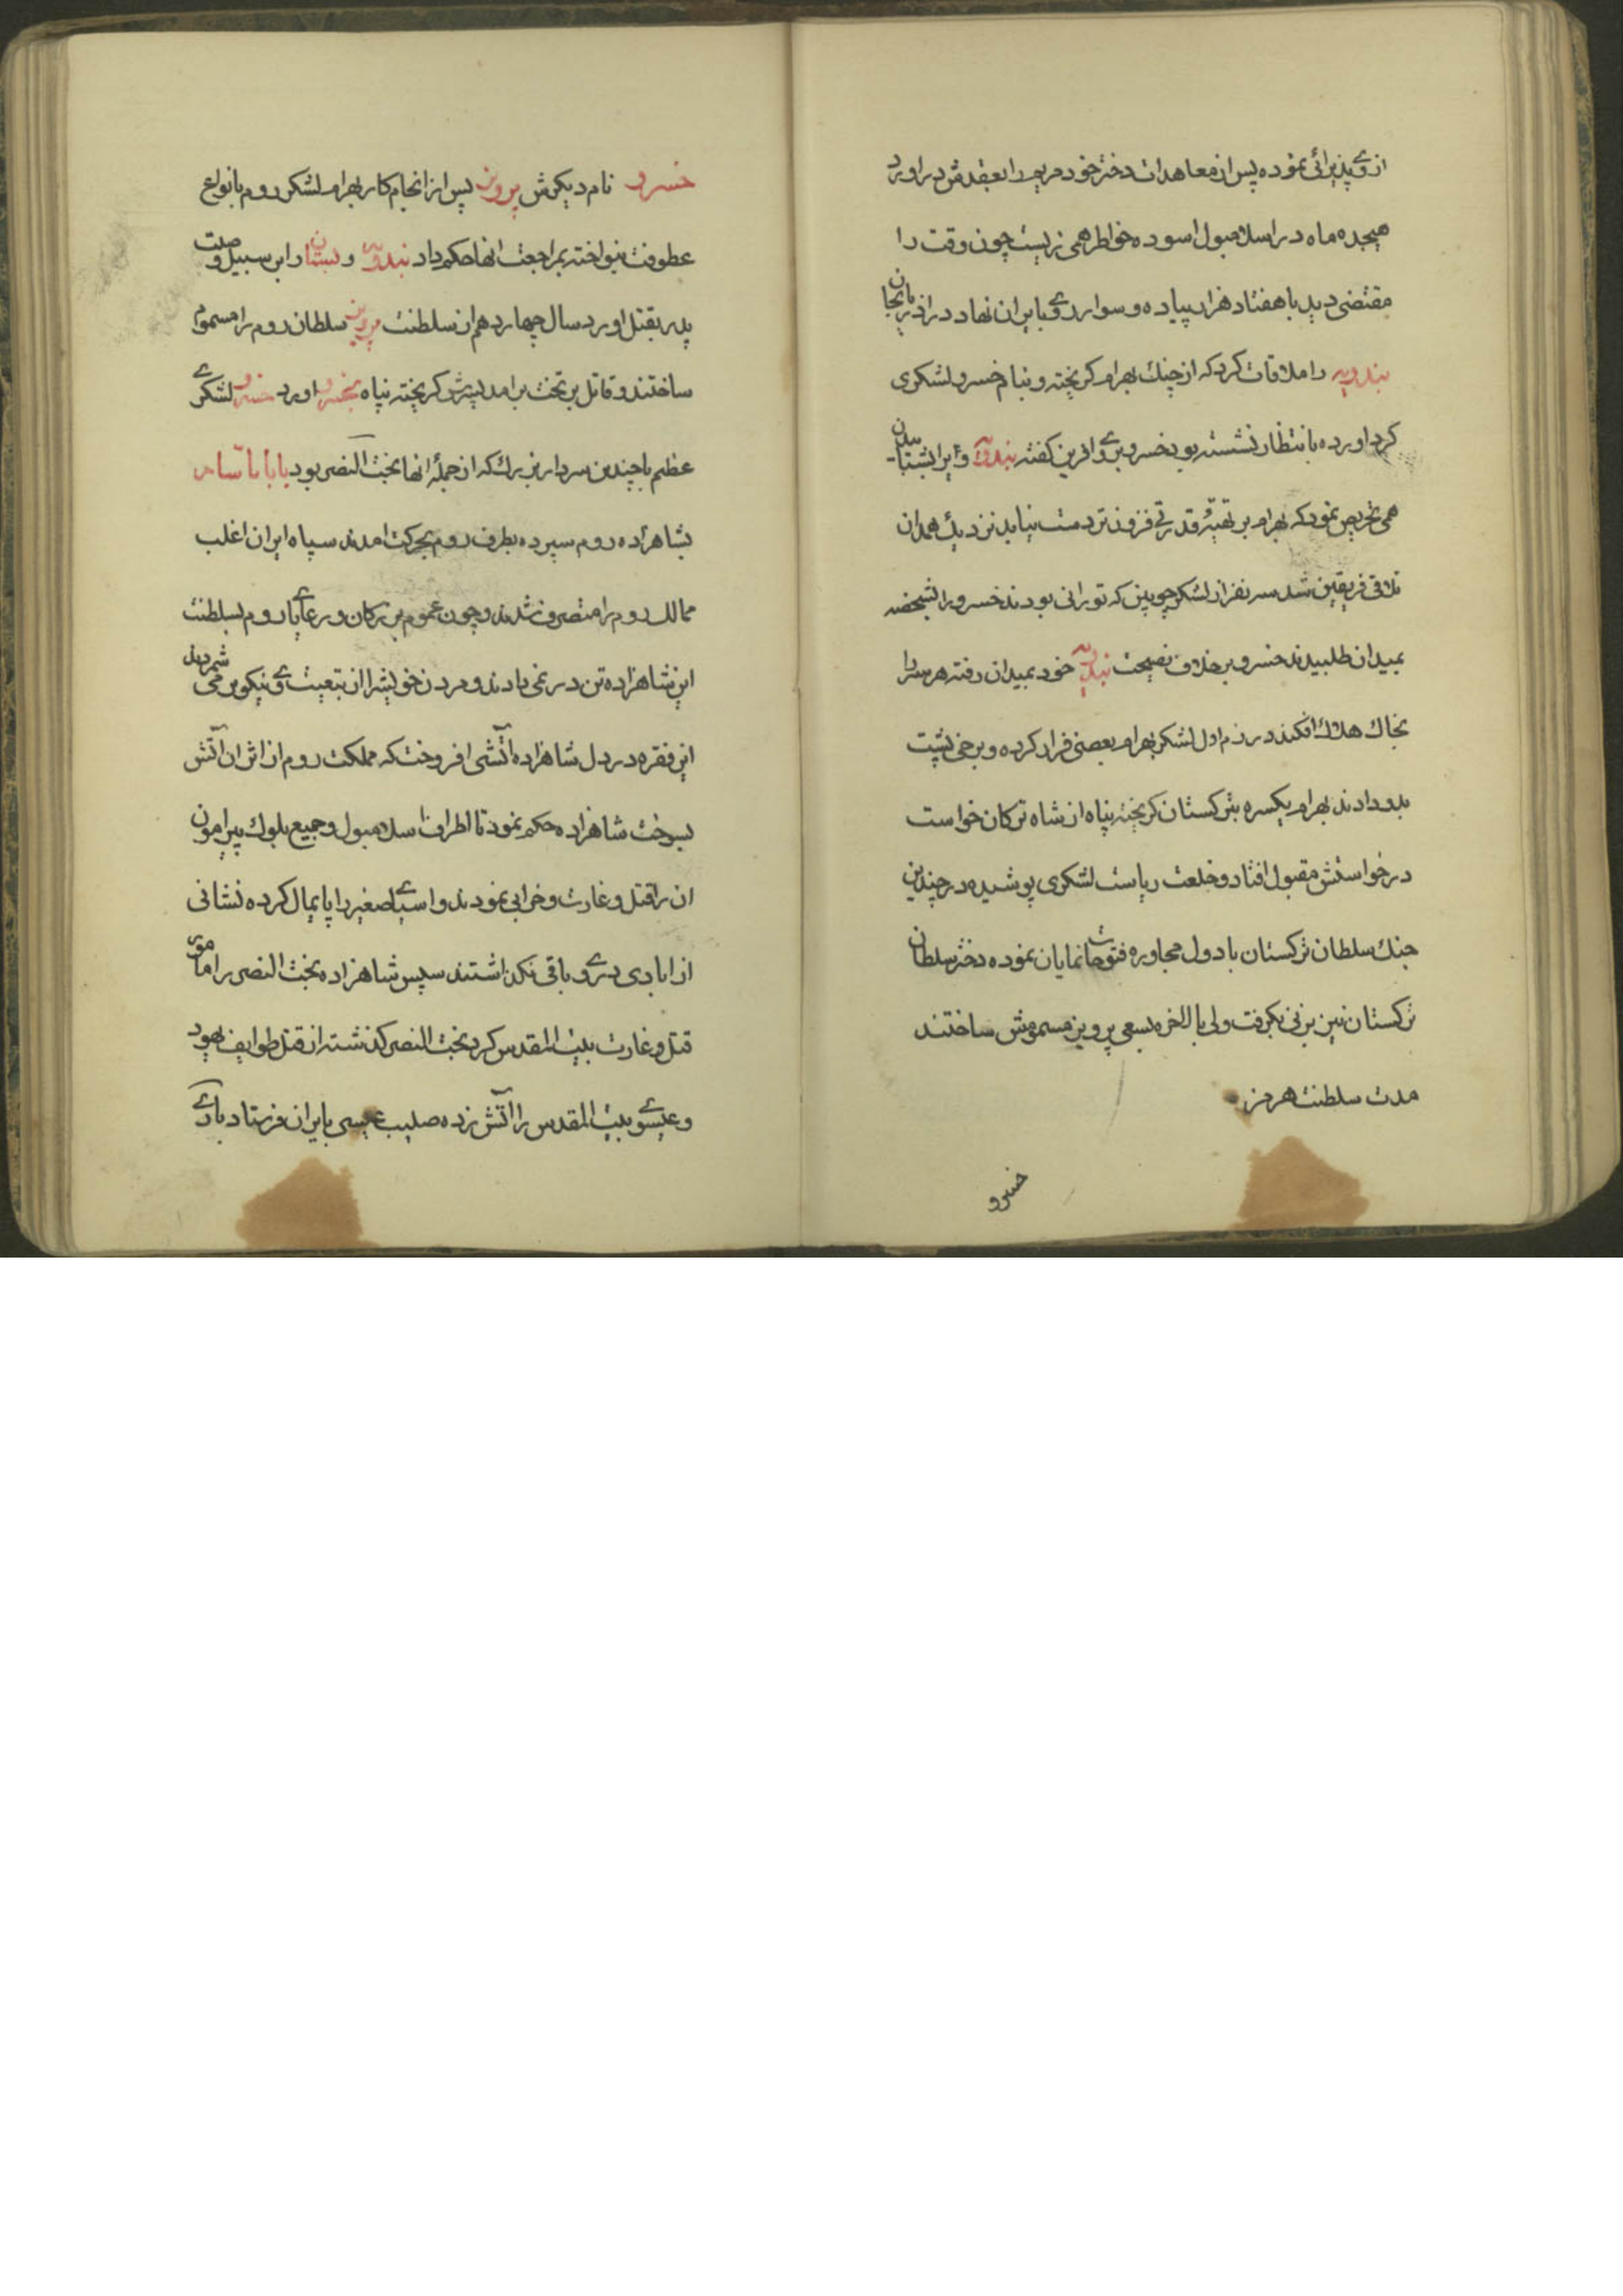 ازوے پذیرائی نموده پس از معاهدات دختر خود مریم را بعقدش در اورد
هیجده ماه در اسلامبول اسوده خواطر همی زیست چون وقت را
مقتضی دید با هفتاد هزار پیاده و سوار روے بایران نهاد در اذربایجان
بندویه را ملاقات کرد که از چنك بهرام کریخته و بنام خسرو لشکری
کرد اورده بانتظار نشسته بود خسرو بروے افرین کفته بندویه ویرا بشتاب
همی تحریص نمود که بهرام بر تهیهٔ قدرتے فزون تر دست نیابد نزدیك همدان
تلاقی فریقین شد سه نفر از لشکر چوبین که تورانی بودند خسرو را
بمیدان طلبیدند خسرو بر خلاف نصیحت بندویه خود بمیدان رفته هر سه را
بخاك هلاك افکند در رزم اول لشکر بهرام بعضی فرار کرده و برخی پشت
بدو دادند بهرام یکسره بترکستان کریخته پناه از شاه ترکان خواست
درخواستش مقبول افتاد و خلعت ریاست لشکری پوشیده در چندین
جنك سلطان ترکستان با دول مجاوره فتوحات نمایان نموده دختر سلطان
ترکستان نیز بزنی بکرفت ولی بالاخره بسعی پرویز مسمومش ساختند
مدت سلطنت هرمز
خسرو
خسرو نام دیکرش پرویز پس از انجام کار بهرام لشکر روم بانواع
عطوفت بنواخته بمراجعت انها حکم داد بندویه و بستان را بر سبیل
پدر بقتل اورد سال چهاردهم از سلطنت پرویز سلطان روم را مسموم
ساختند و قاتل بر تخت برامد پسرش کریخته پناه بخسرو اورد خسرو لشکرے
عظیم با چندین سردار بزرك که از جملهٔ انها بخت النصر بود
بشاهزاده روم سپرده بطرف روم بحرکت امدند سپاه ایران اغلب
ممالك روم را متصرف شدند و چون عموم بزرکان و رعایاے روم بسلطنت
این شاهزاده تن در نمی دادند و مردن خویش را از تبعیت وے نیکوتر می شمردند
این فقره در دل شاهزاده اتشی افروخت که مملکت روم از اثر ان اتش
بسوخت شاهزاده حکم نمود تا اطراف اسلامبول و جمیع بلوك پیرامون
ان را قتل و غارت و خرابی نمودند و اسیاے صغیر را پایمال کرده نشانی
از ابادی در وے باقی نکذاشتند سپس شاهزاده بخت النصر را مامور
قتل و غارت بیت المقدس کرد بخت النصر کذشته از قتل طوایف یهود
و عیسوے بیت المقدس را اتش زده صلیب عیسی بایران فرستاد